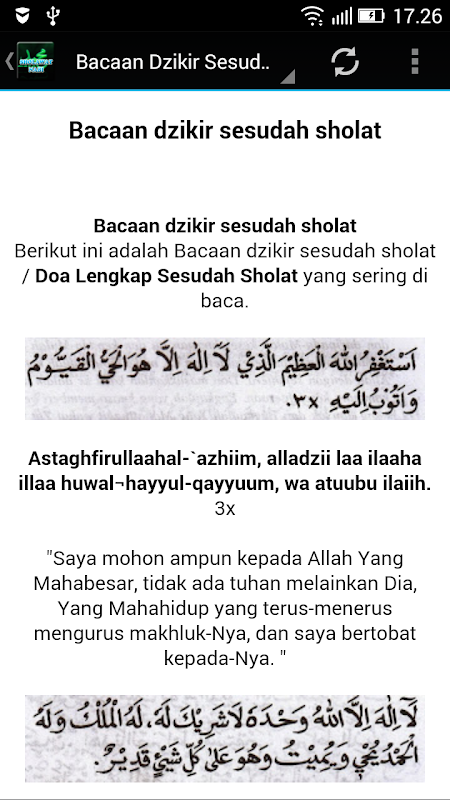 17.26
Bacaan Dzikir Sesud..
Bacaan dzikir sesudah sholat
Bacaan dzikir sesudah sholat
Berikut ini adalah Bacaan dzikir sesudah sholat
/ Doa Lengkap Sesudah Sholat yang sering di
baca.
اَسْتَغْفِرُ اللهَ الْعَظِيْمَ الَّذِيْ لَآ اِلٰهَ اِلَّا هُوَ الْحَيُّ الْقَيُّوْمُ
وَاَتُوْبُ اِلَيْهِ ٣x.
Astaghfirullaahal-`azhiim, alladzii laa ilaaha
illaa huwal¬hayyul-qayyuum, wa atuubu ilaiih.
3x
"Saya mohon ampun kepada Allah Yang
Mahabesar, tidak ada tuhan melainkan Dia,
Yang Mahahidup yang terus-menerus
mengurus makhluk-Nya, dan saya bertobat
kepada-Nya. "
لَآ اِلٰهَ اِلَّا اللهُ وَحْدَهُ لَا شَرِيْكَ لَهُ، لَهُ الْمُلْكُ وَلَهُ
الْحَمْدُ يُحْيِيْ وَيُمِيْتُ وَهُوَ عَلٰى كُلِّ شَيْءٍ قَدِيْرٌ.